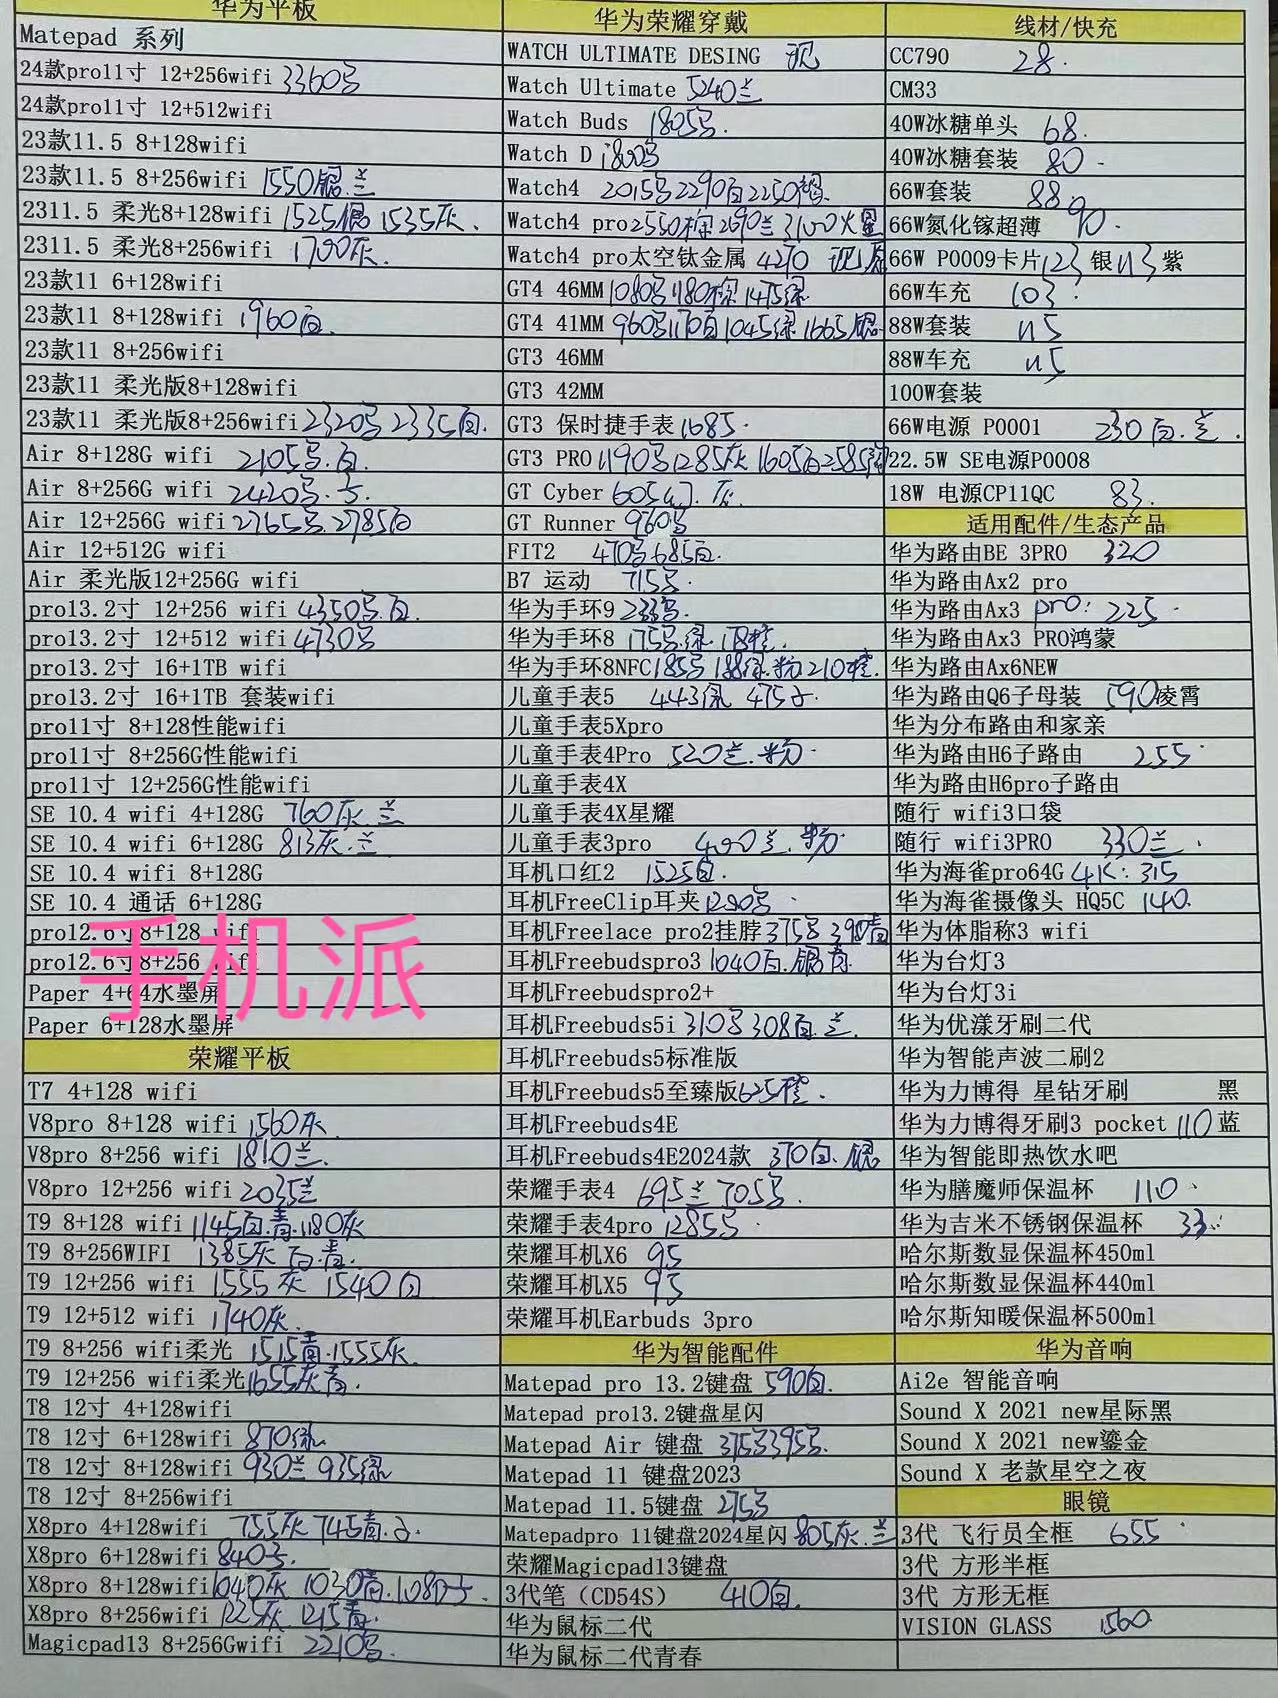 华为平板
Matepad 系列
24款pro11寸 12+256wifi 3360
24款pro11寸 12+512wifi
23款11.5 8+128wifi
23款11.5 8+256wifi 1550银.兰
2311.5 柔光8+128wifi 1525银 1535灰.
2311.5 柔光8+256wifi 1700灰.
23款11 6+128wifi
23款11 8+128wifi 1960白.
23款11 8+256wifi
23款11 柔光版8+128wifi
23款11 柔光版8+256wifi 2320 2335白.
Air 8+128G wifi 2105 .白.
Air 8+256G wifi 2420
Air 12+256G wifi 2765 2785白
Air 12+512G wifi
Air 柔光版12+256G wifi
pro13.2寸 12+256 wifi 4350 .白
pro13.2寸 12+512 wifi 4730
pro13.2寸 16+1TB wifi
pro13.2寸 16+1TB 套装wifi
pro11寸 8+128性能wifi
pro11寸 8+256G性能wifi
pro11寸 12+256G性能wifi
SE 10.4 wifi 4+128G 760灰.兰
SE 10.4 wifi 6+128G 813灰.兰
SE 10.4 wifi 8+128G
SE 10.4 通话 6+128G
pro12.6寸8+128 wifi
pro12.6寸8+256 wifi
手机派
Paper 4+64水墨屏
Paper 6+128水墨屏
荣耀平板
T7 4+128 wifi
V8pro 8+128 wifi 1560灰
V8pro 8+256 wifi 1810兰.
V8pro 12+256 wifi 2035兰
T9 8+128 wifi 1145白.青.1180灰
T9 8+256WIFI 1385灰 白.青.
T9 12+256 wifi 1555灰 1540白
T9 12+512 wifi 1740灰.
T9 8+256 wifi柔光 1515青.1555灰
T9 12+256 wifi柔光 1655灰青.
T8 12寸 4+128wifi
T8 12寸 6+128wifi 870绿
T8 12寸 8+128wifi 930兰 935绿
T8 12寸 8+256wifi
X8pro 4+128wifi 755灰 745青.
X8pro 6+128wifi 840
X8pro 8+128wifi 1040灰 1030青.1080
X8pro 8+256wifi 1225灰 1215青.
Magicpad13 8+256Gwifi 2210
华为荣耀穿戴
WATCH ULTIMATE DESING 现
Watch Ultimate 5240兰
Watch Buds 1805
Watch D 1800
Watch4 2015 2290白2250
Watch4 pro2550棕 2690兰 3100火星
Watch4 pro太空钛金属 4270 现
GT4 46MM 1080 1180棕 1475绿
GT4 41MM 960 1170白1045绿 1665银
GT3 46MM
GT3 42MM
GT3 保时捷手表 1685.
GT3 PRO 1190 1285灰 1605白2585
GT Cyber 605 灰
GT Runner 960
FIT2 470 685白.
B7 运动 715
华为手环9 233
华为手环8 175 .绿.178橙.
华为手环8NFC185 188绿.粉210橙.
儿童手表5 443 475
儿童手表5Xpro
儿童手表4Pro 520兰.粉.
儿童手表4X
儿童手表4X星耀
儿童手表3pro 490兰.粉.
耳机口红2 1525白.
耳机FreeClip耳夹1290
耳机Freelace pro2挂脖375 390青
耳机Freebudspro3 1040白.银.青.
耳机Freebudspro2+
耳机Freebuds5i 310 308白.兰.
耳机Freebuds5标准版
耳机Freebuds5至臻版625橙.
耳机Freebuds4E
耳机Freebuds4E2024款 370白.银
荣耀手表4 695兰 705
荣耀手表4pro 1285
荣耀耳机X6 95
荣耀耳机X5 95
荣耀耳机Earbuds 3pro
华为智能配件
Matepad pro 13.2键盘 590白.
Matepad pro13.2键盘星闪
Matepad Air 键盘 375 395
Matepad 11 键盘2023
Matepad 11.5键盘 275
Matepadpro 11键盘2024星闪 805灰.兰
荣耀Magicpad13键盘
3代笔（CD54S） 410白.
华为鼠标二代
华为鼠标二代青春
线材/快充
CC790 28.
CM33
40W冰糖单头 68.
40W冰糖套装 80.
66W套装 88
66W氮化镓超薄 90.
66W P0009卡片123银113紫
66W车充 103.
88W套装 115
88W车充 115
100W套装
66W电源 P0001 230白.兰.
22.5W SE电源P0008
18W 电源CP11QC 83.
适用配件/生态产品
华为路由BE 3PRO 320
华为路由Ax2 pro
华为路由Ax3 pro: 225.
华为路由Ax3 PRO鸿蒙
华为路由Ax6NEW
华为路由Q6子母装 590凌霄
华为分布路由和家亲
华为路由H6子路由 255
华为路由H6pro子路由
随行 wifi3口袋
随行 wifi3PRO 330兰.
华为海雀pro64G 4K: 315
华为海雀摄像头 HQ5C 140.
华为体脂称3 wifi
华为台灯3
华为台灯3i
华为优漾牙刷二代
华为智能声波二刷2
华为力博得 星钻牙刷 黑
华为力博得牙刷3 pocket 110蓝
华为智能即热饮水吧
华为膳魔师保温杯 110
华为吉米不锈钢保温杯 33
哈尔斯数显保温杯450ml
哈尔斯数显保温杯440ml
哈尔斯知暖保温杯500ml
华为音响
Ai2e 智能音响
Sound X 2021 new星际黑
Sound X 2021 new鎏金
Sound X 老款星空之夜
眼镜
3代 飞行员全框 655
3代 方形半框
3代 方形无框
VISION GLASS 1560